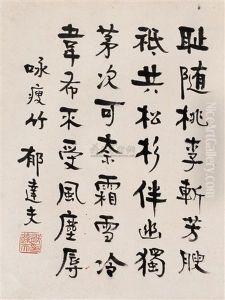 耻随桃李斬芳腴
祇共松杉伴幽獨
茅次可奈霜雪冷
韋希不受風塵辱
咏瘦竹 郁達夫